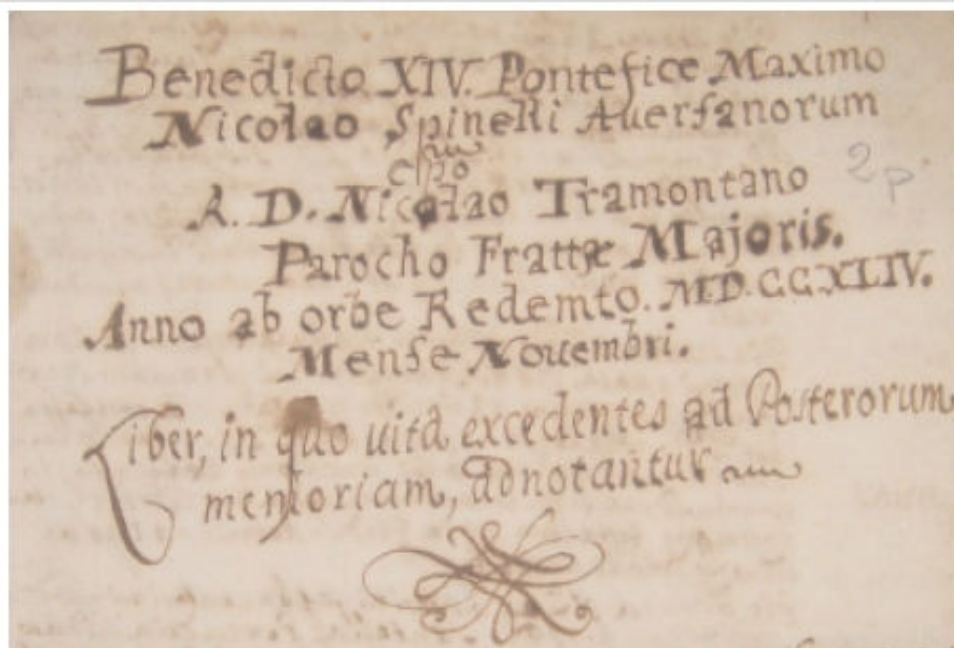 Benedicto XIV. Pontefice Maximo
Nicolao Spinelli Auersanorum
A. D. Nicolao Tramontano
Parocho Frattæ Majoris.
Anno ab orbe Redemto. M.D.CCXLIV.
Mense Nouembri.
Liber, in quo uitâ excedentes ad Posterorum
memoriam, adnotantur
2 p